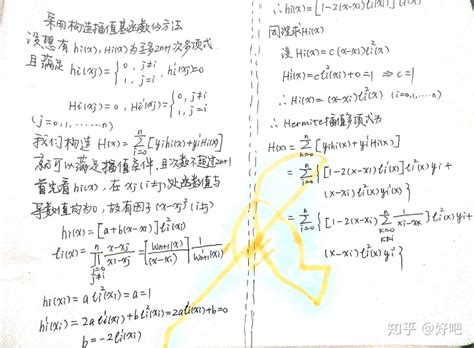 采用构造插值基函数的方法
设想有 hi(x), Hi(x)为至多2n+1次多项式
且满足 hi(xj) = { 0, j≠i 1, j=i , hi'(xj)=0
Hi(xj) = 0, Hi'(xj) = { 0, j≠i 1, j=i
(j=0,1,......n)
我们构造 H(x) = Σ[yihi(x)+yi'Hi(x)]
就可以满足插值条件且次数不超过2n+1
首先看 hi(x), 在 xj(i≠j)处函数值与
导数值均为0, 故有因子 (x-xj)²(i≠j)
hi(x) = [a+b(x-xi)] li²(x)
li(x) = ∏ (x-xj)/(xi-xj) = [Wn+1(x)/(x-xi)] 1/W'n+1(xi)
hi(xi) = a li²(xi) = a = 1
hi'(xi) = 2a li'(xi) + b li²(xi) = 2a li'(xi) + b = 0
b = -2li'(xi)
∴ hi(x) = [1-2(x-xi)li'(xi)] li²(x)
同理求Hi(x)
设 Hi(x) = c(x-xi)li²(x)
Hi'(xi) = c li²(xi)+0 = 1 ⇒ c=1
∴ Hi(x) = (x-xi)li²(x) (i=0,1,...n)
∴ Hermite插值多项式为
H(x) = Σ[yihi(x)+yi'Hi(x)]
= Σ{[1-2(x-xi)li'(xi)]li²(x)yi+
(x-xi)li²(x)yi'}
= Σ{[1-2(x-xi)Σ 1/(xi-xk)]li²(x)yi+
(x-xi)li²(x)yi'}
知乎 @好吧